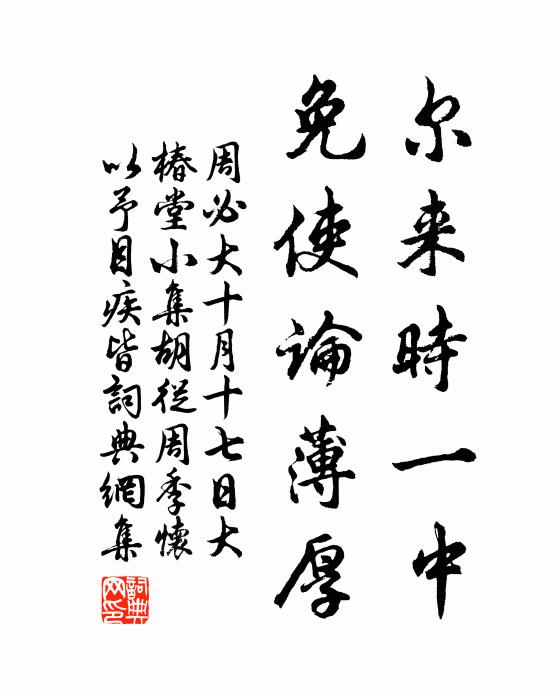 尔来時一中
免使論薄厚
周必大十月十七日大
椿堂小集胡從周季懷
以予目疾皆詞典網集
詞典網印